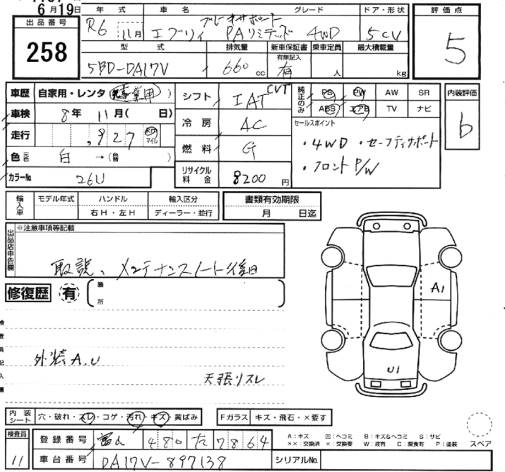 6月19日
出品番号
258
年式 車名 グレード ドア・形状
R6 11月 エブリィ PAリミテッド 4WD 5CV
型式 排気量 新車保証書 乗車定員 最大積載量
有無記入
5BD-DA17V 660cc 有 人 kg
評価点
5
車歴 自家用・レンタ・事業用
車検 8年11月(日)
走行 ,927 km マイル
色 白→( )番色
カラーNo 26U
シフト IAT CVT
冷房 AC
燃料 G
リサイクル料金 8200円
純正のみ PS PW AW SR
ABS エアB TV ナビ
内装評価
b
セールスポイント
・4WD ・セーフティサポート
・フロントP/W
輸入車 モデル年式 ハンドル 輸入区分
右H・左H ディーラー・並行
書類有効期限
月 日迄
出品店申告欄
※注意事項等記載
取説、メンテナンスノート後日
修復歴 有 箇所
検査員記入欄
外装A.U
天張リスレ
A1
U1
内装シート 穴・破れ・スレ・コゲ・汚れ・キズ・黄ばみ
Fガラス キズ・飛石・×要す
検査員
11
登録番号 480 た 7864
車台番号 DA17V-897138
シリアルNo.
A:キズ U:ヘコミ B:キズ&ヘコミ S:サビ
××:交換済 ×:交換要 W:波有 C:腐食有 P:塗装
スペア